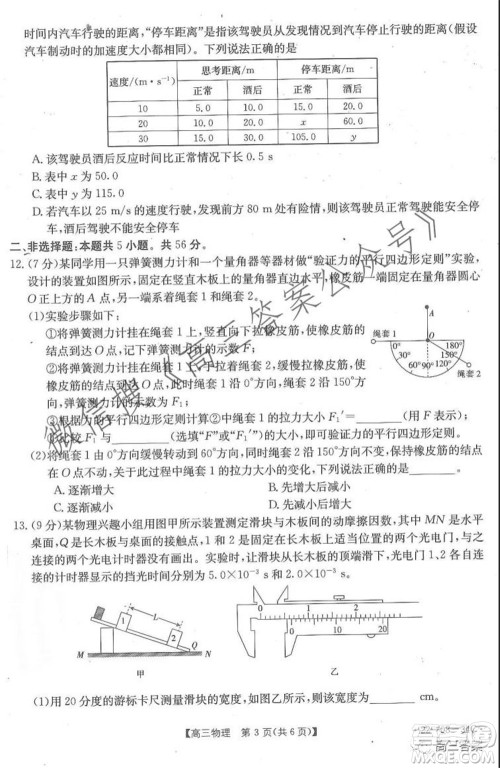 时间内汽车行驶的距离，“停车距离”是指该驾驶员从发现情况到汽车停止行驶的距离(假设
汽车制动时的加速度大小都相同)。下列说法正确的是
速度/(m·s⁻¹) 思考距离/m 停车距离/m
正常 酒后 正常 酒后
10 5.0 10.0 15.0 20.0
20 10.0 20.0 x 60.0
30 15.0 30.0 105.0 y
A. 该驾驶员酒后反应时间比正常情况下长 0.5 s
B. 表中 x 为 50.0
C. 表中 y 为 115.0
D. 若汽车以 25 m/s 的速度行驶，发现前方 80 m 处有险情，则该驾驶员正常驾驶能安全停
车，酒后驾驶不能安全停车
二、非选择题：本题共 5 小题。共 56 分。
12. (7 分)某同学用一只弹簧测力计和一个量角器等器材做“验证力的平行四边形定则”实验，
设计的装置如图所示，固定在竖直木板上的量角器直边水平，橡皮筋一端固定在量角器圆心
O正上方的A点，另一端系着绳套1和绳套2。
(1)实验步骤如下：
①将弹簧测力计挂在绳套 1 上，竖直向下拉橡皮筋，使橡皮筋的
结点到达 O 点，记下弹簧测力计的示数 F；
②将弹簧测力计挂在绳套 1 上，手拉着绳套2，缓慢拉橡皮筋，使
橡皮筋的结点到达 O 点，此时绳套 1 沿 0°方向，绳套 2 沿 150°方
向，弹簧测力计的示数为 F₁；
③根据力的平行四边形定则计算②中绳套 1 的拉力大小 F₁′= (用 F 表示)；
④比较 F₁ 与 (选填“F”或“F₁′”)，即可初步验证力的平行四边形定则。
(2)将绳套 1 由 0°方向缓慢转动到 60°方向，同时绳套 2 沿 150°方向不变，保持橡皮筋的结点
在 O 点不动，关于此过程中绳套 1 的拉力大小的变化，下列说法正确的是 。
A. 逐渐增大
B. 先增大后减小
C. 逐渐减小
D. 先减小后增大
A
绳套 1
O
0°
30°
60°
90°
120°
150°
180°
绳套 2
13. (9 分)某物理兴趣小组用图甲所示装置测定滑块与木板间的动摩擦因数，其中 MN 是水平
桌面，Q 是长木板与桌面的接触点，1 和 2 是固定在长木板上适当位置的两个光电门，与之
连接的两个光电计时器没有画出。实验时，让滑块从长木板的顶端滑下，光电门 1、2 各自
连接的计时器显示的挡光时间分别为 5.0×10⁻² s 和 2.0×10⁻² s。
L
1
2
M
Q
N
甲
0 1 2
0 10 20
乙
(1)用 20 分度的游标卡尺测量滑块的宽度，如图乙所示，则读数为 cm。
【高三物理 第 3 页(共 6 页)】
微信搜《高三答案公众号》
高三答案